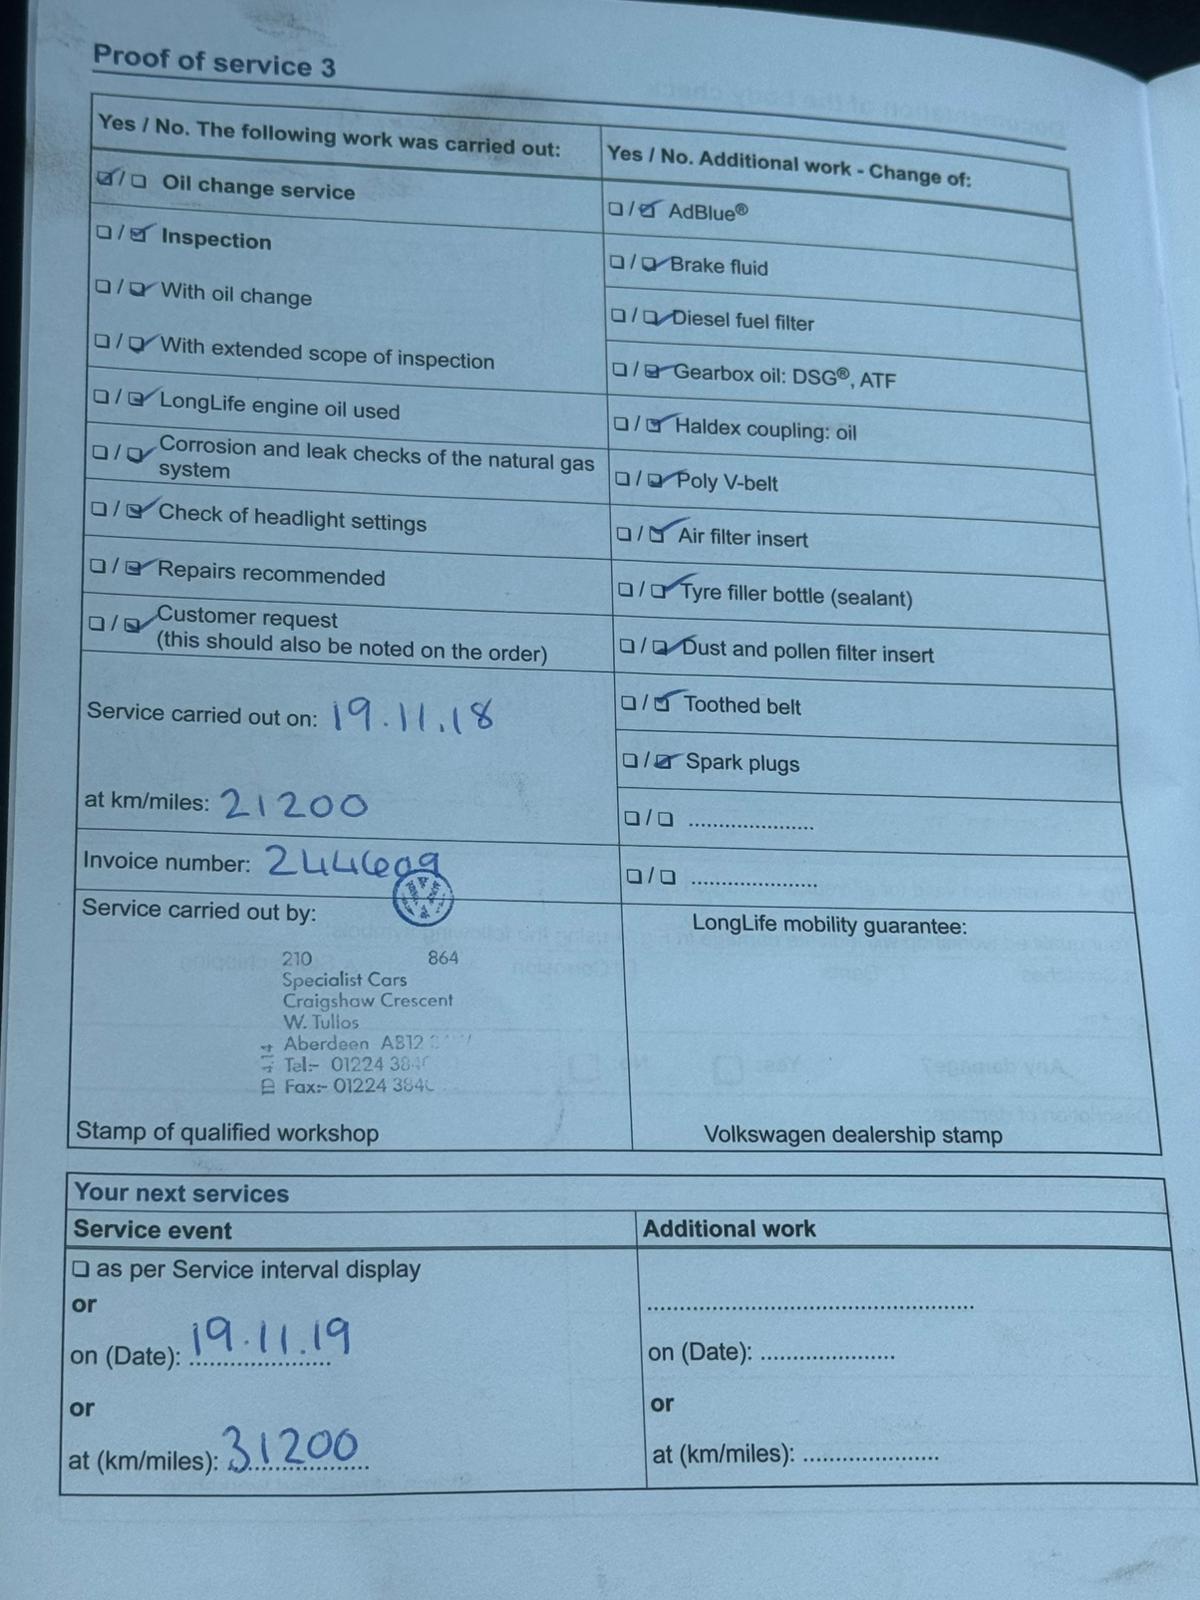 Proof of service 3
Yes / No. The following work was carried out:
☑/☐ Oil change service
☐/☑ Inspection
☐/☑ With oil change
☐/☑ With extended scope of inspection
☐/☑ LongLife engine oil used
☐/☑ Corrosion and leak checks of the natural gas
system
☐/☑ Check of headlight settings
☐/☑ Repairs recommended
☐/☑ Customer request
(this should also be noted on the order)
Service carried out on: 19.11.18
at km/miles: 21200
Invoice number: 244609
Service carried out by:
210 864
Specialist Cars
Craigshaw Crescent
W. Tullos
Aberdeen AB12
Tel:- 01224
Fax:- 01224
Stamp of qualified workshop
Yes / No. Additional work - Change of:
☐/☑ AdBlue®
☐/☑ Brake fluid
☐/☑ Diesel fuel filter
☐/☑ Gearbox oil: DSG®, ATF
☐/☑ Haldex coupling: oil
☐/☑ Poly V-belt
☐/☑ Air filter insert
☐/☑ Tyre filler bottle (sealant)
☐/☑ Dust and pollen filter insert
☐/☑ Toothed belt
☐/☑ Spark plugs
☐/☐ ......................
☐/☐ ......................
LongLife mobility guarantee:
Volkswagen dealership stamp
Your next services
Service event
☐ as per Service interval display
or
on (Date): 19.11.19
or
at (km/miles): 31200
Additional work
..........................................................
on (Date): ........................
or
at (km/miles): ........................